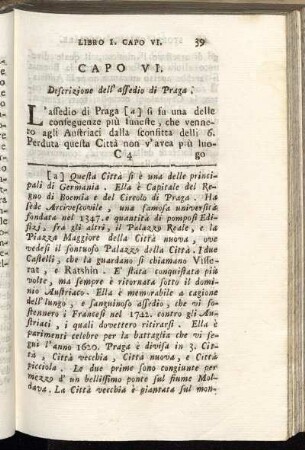 LIBRO I. CAPO VI. 39
CAPO VI.
Descrizione dell'assedio di Praga.
L'assedio di Praga [a] si fu una delle
conseguenze più funeste, che venne-
ro agli Austriaci dalla sconfitta delli 6.
Perduta questa Città non v'avea più luo-
C 4 go
[a] Questa Città si è una delle princi-
pali di Germania. Ella è Capitale del Re-
gno di Boemia e del Circolo di Praga. Ha
sede Arcivescovile, una famosa università
fondata nel 1347. e quantità di pomposi Edi-
fizj, fra gli altri, il Palazzo Reale, e la
Piazza Maggiore della Città nuova, ove
vedesi il sontuoso Palazzo della Città. I due
Castelli, che la guardano si chiamano Visse-
rat, e Ratshin. E' stata conquistata più
volte, ma sempre è ritornata sotto il domi-
nio Austriaco. Ella è memorabile a cagione
dell'lungo, e sanguinoso assedio, che vi so-
stennero i Francesi nel 1742. contro gli Au-
striaci, i quali dovettero ritirarsi. Ella è
parimenti celebre per la battaglia che vi se-
guì l'anno 1620. Praga è divisa in 3. Cit-
tà, Città vecchia, Città nuova, e Città
picciola. Le due prime sono congiunte per
mezzo d' un bellissimo ponte sul fiume Mol-
dava. La Città vecchia è piantata sul mon-